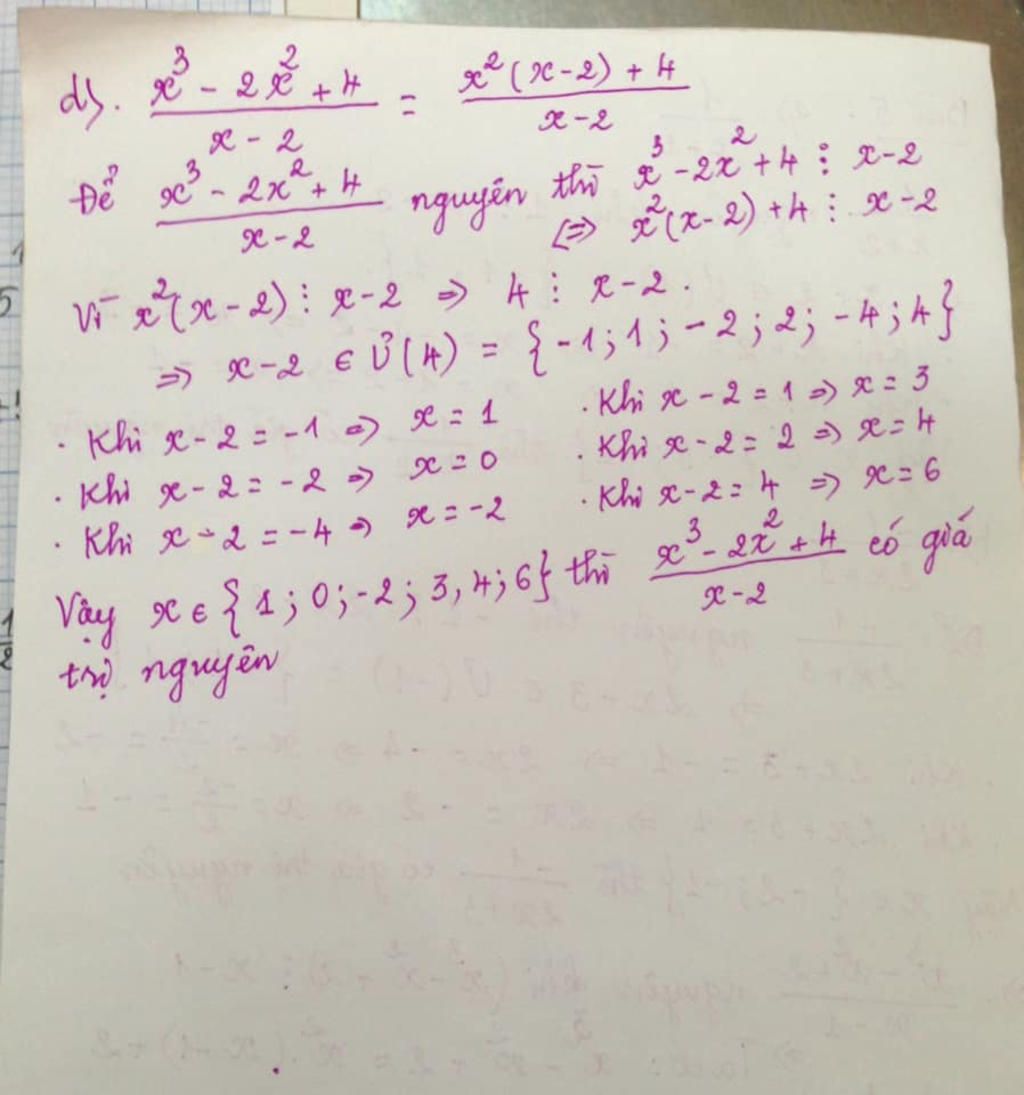 d). (x³ - 2x² + 4)/(x - 2) = (x²(x-2) + 4)/(x-2)
Để (x³ - 2x² + 4)/(x-2) nguyên thì x³ - 2x² + 4 ⋮ x-2
<=> x²(x-2) + 4 ⋮ x-2
Vì x²(x-2) ⋮ x-2 => 4 ⋮ x-2.
=> x-2 ∈ Ư(4) = {-1; 1; -2; 2; -4; 4}
· Khi x-2 = -1 => x = 1 · Khi x-2 = 1 => x = 3
· Khi x-2 = -2 => x = 0 · Khi x-2 = 2 => x = 4
· Khi x-2 = -4 => x = -2 · Khi x-2 = 4 => x = 6
Vậy x ∈ {1; 0; -2; 3, 4; 6} thì (x³ - 2x² + 4)/(x-2) có giá
trị nguyên